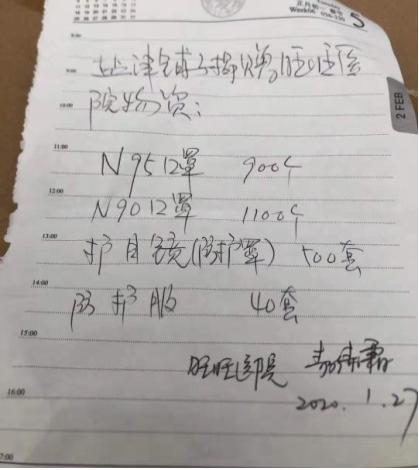 捐赠旺旺医
院物资:
N95口罩 900个
N90口罩 1100个
护目镜(防护罩) 500套
防护服 40套
旺旺医院
2020.1.27
2 FEB
9:00
10:00
11:00
12:00
13:00
14:00
15:00
16:00